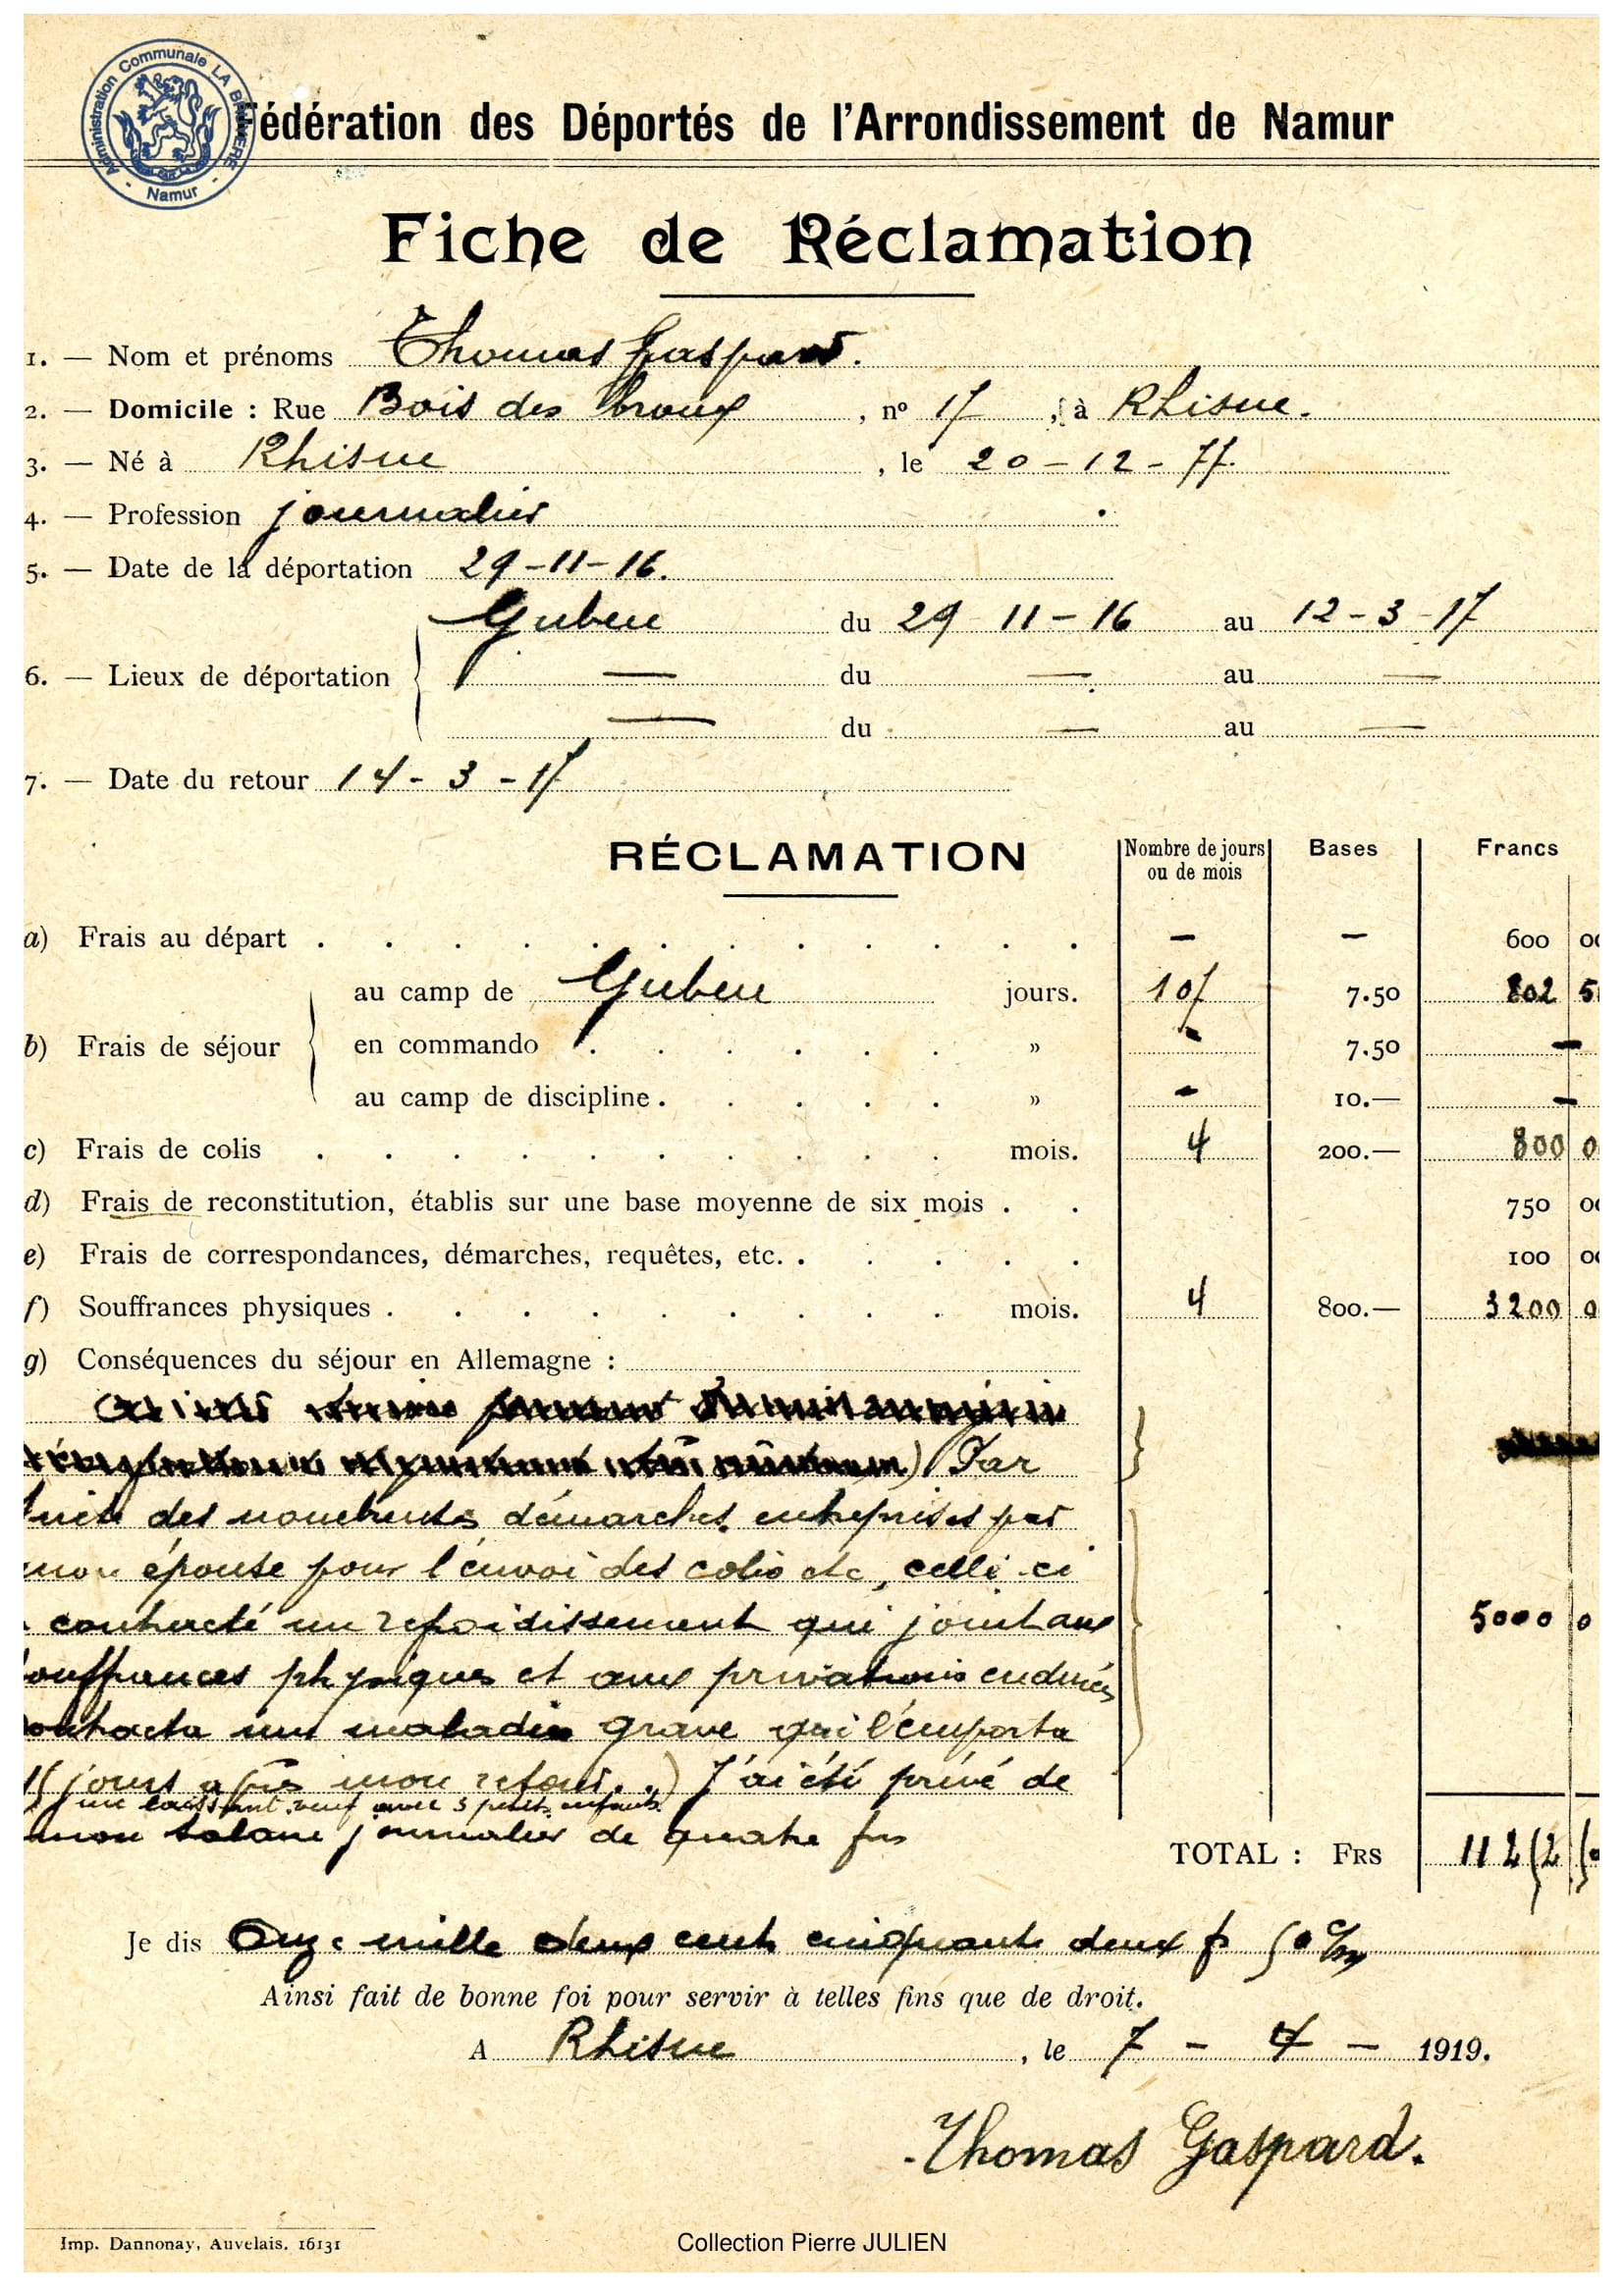 Administration Communale LA BRUYERE - Namur -
Fédération des Déportés de l'Arrondissement de Namur
Fiche de Réclamation
1. — Nom et prénoms Thomas Gaspard.
2. — Domicile : Rue Bois des , n° 17 , à Rhisne.
3. — Né à Rhisne , le 20-12-77.
4. — Profession journalier
5. — Date de la déportation 29-11-16.
Guben du 29 11-16 au 12-3-17
6. — Lieux de déportation — du — au —
— du — au —
7. — Date du retour 14-3-17
RÉCLAMATION Nombre de jours ou de mois Bases Francs
a) Frais au départ — — 600 00
au camp de Guben jours. 107 7.50 802 5
b) Frais de séjour en commando » — 7.50 —
au camp de discipline » — 10.— —
c) Frais de colis mois. 4 200.— 800 0
d) Frais de reconstitution, établis sur une base moyenne de six mois 750 00
e) Frais de correspondances, démarches, requêtes, etc. 100 00
f) Souffrances physiques mois. 4 800.— 3200 0
g) Conséquences du séjour en Allemagne :
) Par
suite des nombreuses démarches entreprises par
mon épouse pour l'envoi des colis etc, celle-ci
a contracté un refroidissement qui joint aux
souffrances physiques et aux privations endurées 5000 0
contracta une maladie grave qui l'emporta
jours après mon retour..) J'ai été privé de
me laissant veuf avec 3 petits enfants.
mon salaire journalier de quatre frs
TOTAL : FRS 11252 50
Je dis Onze mille deux cent cinquante deux fr 50 c/m
Ainsi fait de bonne foi pour servir à telles fins que de droit.
A Rhisne , le 7 - 4 - 1919.
Thomas Gaspard.
Imp. Dannonay, Auvelais. 16131
Collection Pierre JULIEN